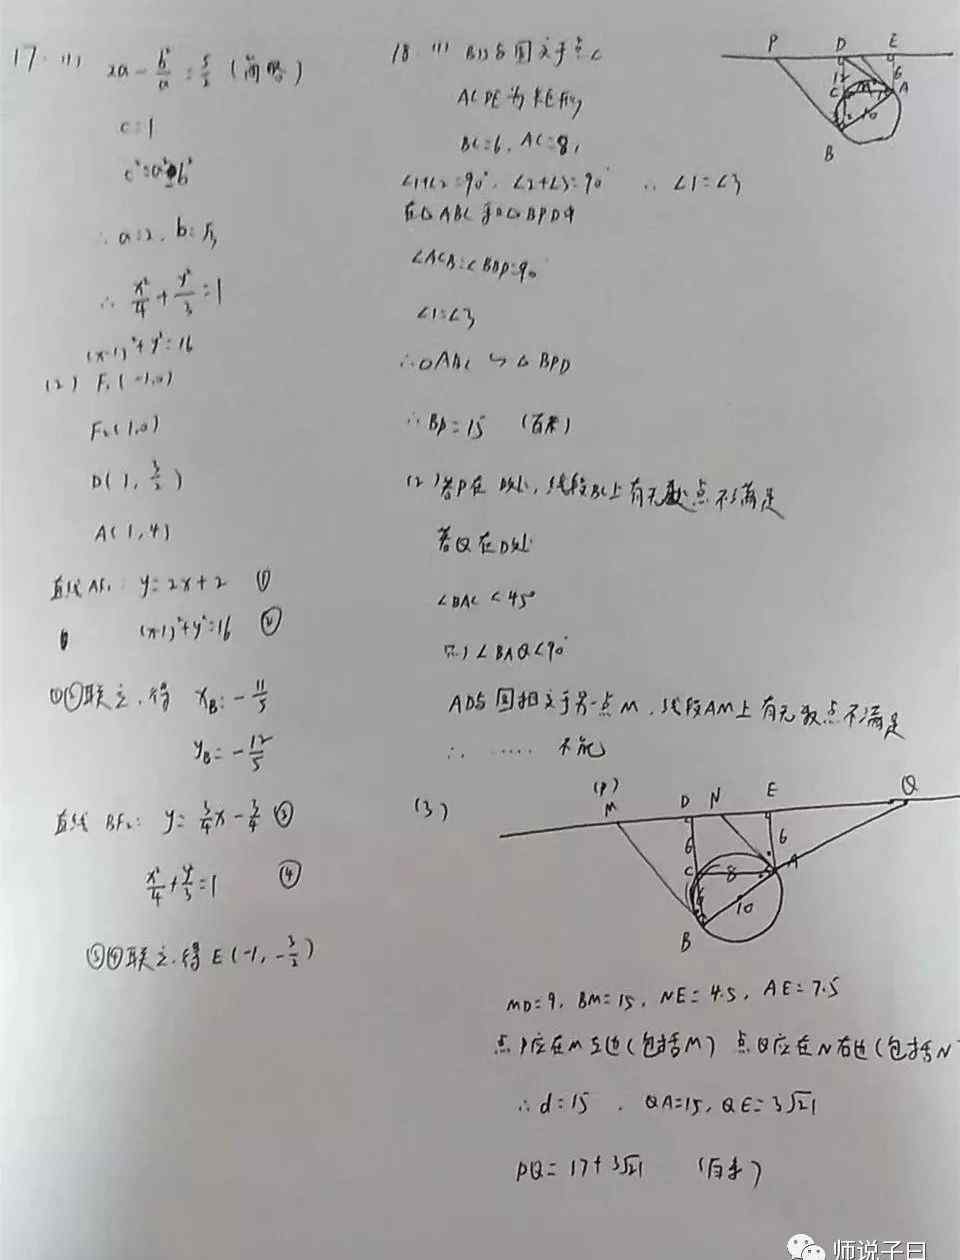 17. (1) 2a - b²/a = 5/2 (简略)
c=1
c²=a²-b²
∴ a=2, b=√3
∴ x²/4 + y²/3 = 1
(x-1)²+y²=16
(2) F₁(-1,0)
F₂(1,0)
D(1, 3/2)
A(1,4)
直线AF₁: y=2x+2 ①
(x-1)²+y²=16 ②
①②联立,得 x_B=-11/5
y_B=-12/5
直线 BF₂: y=3/4x-3/4 ③
x²/4+y²/3=1 ④
③④联立,得 E(-1,-3/2)
18 (1) BD与圆交于点C
ACDE为矩形
BC=6, AC=8,
∠1+∠2=90°, ∠2+∠3=90° ∴ ∠1=∠3
在△ABC和△BPD中
∠ACB=∠BDP=90°
∠1=∠3
∴△ABC ∽ △BPD
∴BP=15 (百米)
(2) 若P在D处,线段BC上有无数点不满足
若Q在D处
∠DAC<45°
则∠BAQ<90°
AD与圆相交于另一点M,线段AM上有无数点不满足
∴ …… 不能
(3)
P D E
12 6
C A
10
B
(P)
M D N E Q
6 6
C 8 A
10
B
MD=9, BM=15, NE=4.5, AE=7.5
点P应在M左边(包括M) 点Q应在N右边(包括N
∴d=15 , QA=15, QE=3√21
PQ=17+3√21 (百米)
师说子曰